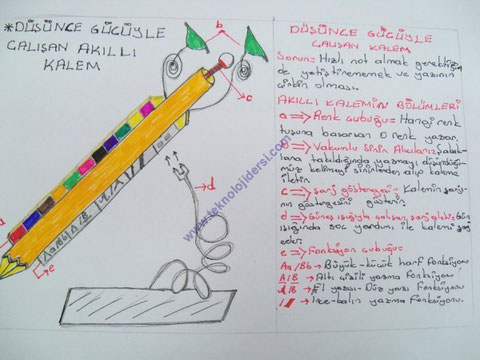 *DÜŞÜNCE GÜCÜYLE
ÇALIŞAN AKILLI
KALEM
b
c
d
a
e
www.teknolojidersi.com
DÜŞÜNCE GÜCÜYLE
ÇALIŞAN KALEM
Sorun= Hızlı not almak gerektiğin
de yetiştirememek ve yazının
çirkin olması.
AKILLI KALEMİN BÖLÜMLERİ
a => Renk Çubuğu= Hangi renk
tuşuna basarsan o renk yazar.
b => Vakumlu Sinir Alıcıları= Şakak-
lara takıldığında yazmayı düşündüğü-
müz kelimeyi sinirlerden alıp kaleme
iletir.
c => Şarj göstergesi= Kalemin şarjı-
nın göstergesini gösterir.
d => Güneş ışığıyla çalışan şarj aleti= Gün
ışığında ile kalemi şarj
eder.
e => Fonksiyon Çubuğu=
Aa/Bb → Büyük-küçük harf fonksiyonu
A/B → Altı çizili yazma fonksiyonu
→ El yazısı-Düz yazı Fonksiyonu
→ İnce-kalın yazma Fonksiyonu.